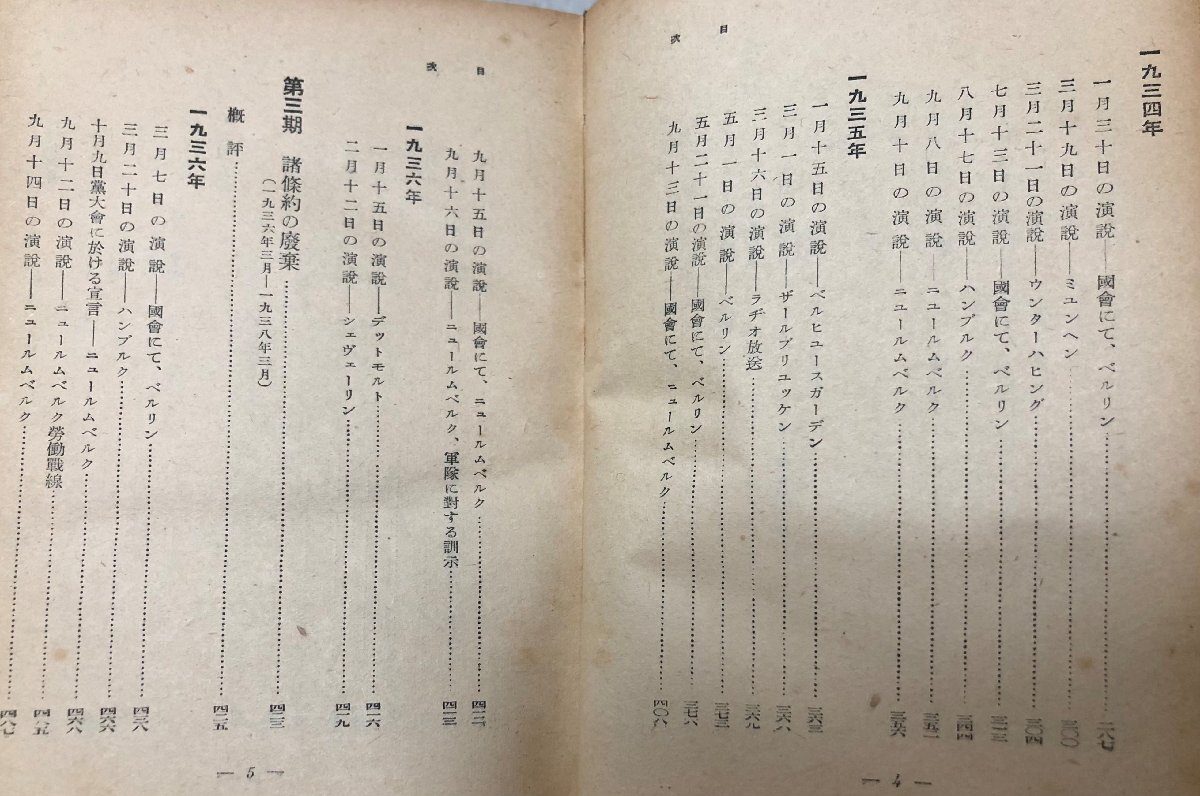 目次
一九三四年
一月三十日の演說――國會にて、ベルリン……二八七
三月十九日の演說――ミュンヘン……三〇〇
三月二十一日の演說――ウンターハヒング……三〇四
七月十三日の演說――國會にて、ベルリン……三一三
八月十七日の演說――ハンブルク……三四四
九月八日の演說――ニュールムベルク……三五二
九月十日の演說――ニュールムベルク……三五六
一九三五年
一月十五日の演說――ベルヒユースガーデン……三六三
三月一日の演說――ザールブリユッケン……三六六
三月十六日の演說――ラヂオ放送……三六九
五月一日の演說――ベルリン……三七三
五月二十一日の演說――國會にて、ベルリン……三七六
九月十三日の演說――國會にて、ニュールムベルク……四〇八
― 4 ―
目次
九月十五日の演說――國會にて、ニュールムベルク……四一二
九月十六日の演說――ニュールムベルク、軍隊に對する訓示……四一三
一九三六年
一月十五日の演說――デットモルト……四一六
二月十二日の演說――シェヴェーリン……四一九
第三期 諸條約の廢棄……四二三
（一九三六年三月―一九三八年三月）
槪評……四二五
一九三六年
三月七日の演說――國會にて、ベルリン……四三八
三月二十日の演說――ハンブルク……四六六
十月九日黨大會に於ける宣言――ニュールムベルク……四六八
九月十二日の演說――ニュールムベルク勞働戰線……四八五
九月十四日の演說――ニュールムベルク……四八七
― 5 ―